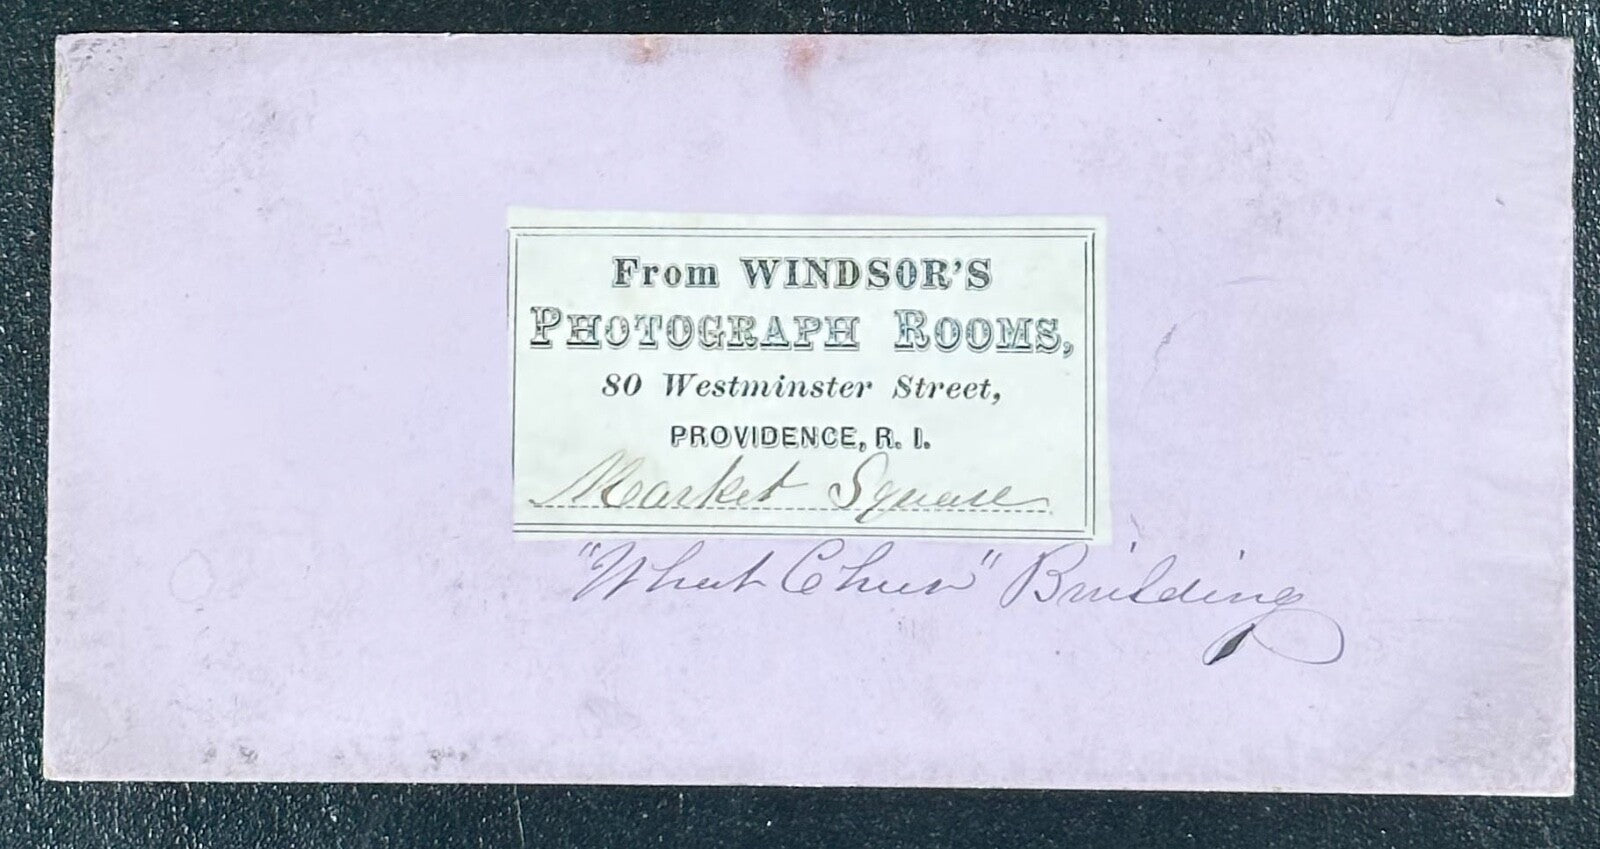 From WINDSOR'S
PHOTOGRAPH ROOMS,
80 Westminster Street,
PROVIDENCE, R. I.
Market Square
"What Cheer" Building